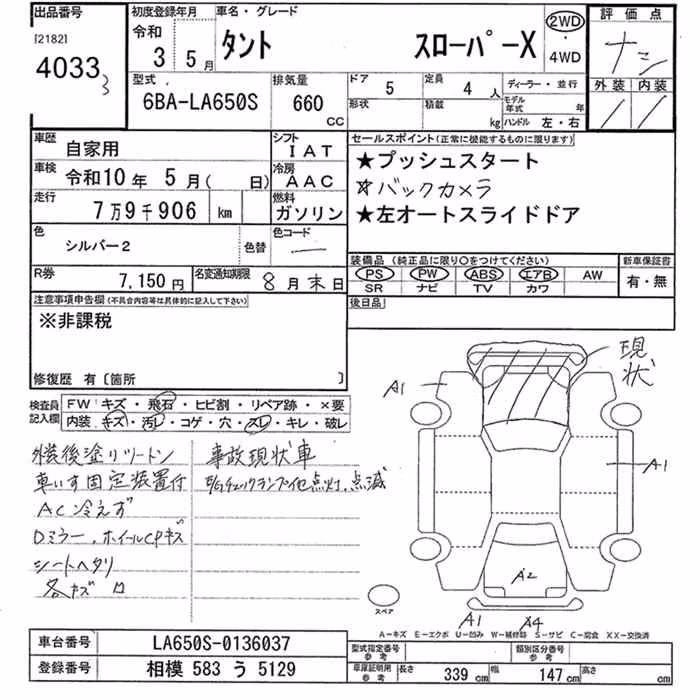 出品番号
[2182]
4033
3
初度登録年月
令和
3 5月
車名・グレード
タント スローパーX
2WD
・
4WD
評価点
ナシ
外装 内装
型式
6BA-LA650S
排気量
660 CC
ドア 5
定員 4 人
ディーラー・並行
形状
積載 kg
モデル年式 年
ハンドル 左・右
車歴 自家用
シフト IAT
車検 令和10年 5月( 日)
冷房 AAC
走行 7万9千906 km
燃料 ガソリン
色 シルバー2
色替
色コード
R券 7,150円
名変通知期限 8月末日
セールスポイント(正常に機能するものに限ります)
★プッシュスタート
☆バックカメラ
★左オートスライドドア
装備品 (純正品に限り〇をつけてください)
PS PW ABS エアB AW
SR ナビ TV カワ
新車保証書
有・無
後日品
注意事項申告欄(不具合内容等は具体的に記入して下さい)
※非課税
修復歴 有〔箇所 〕
検査員記入欄
FW キズ・飛石・ヒビ割・リペア跡・×要
内装 キズ・汚レ・コゲ・穴・スレ・キレ・破レ
外装後塗りツートン
車いす固定装置付
AC冷えず
Dミラー、ホイールCPキズ
シートヘタリ
各キズ
事故現状車
チェックランプ他点灯、点滅
現状
A1
A1
A2
A1 A4
スペア
A-キズ E-エクボ U-凹み W-補修跡 S-サビ C-腐食 XX-交換済
車台番号 LA650S-0136037
登録番号 相模 583 う 5129
型式指定番号 参考
類別区分番号 参考
車庫証明用 参考
長さ 339 cm
幅 147 cm
高さ cm